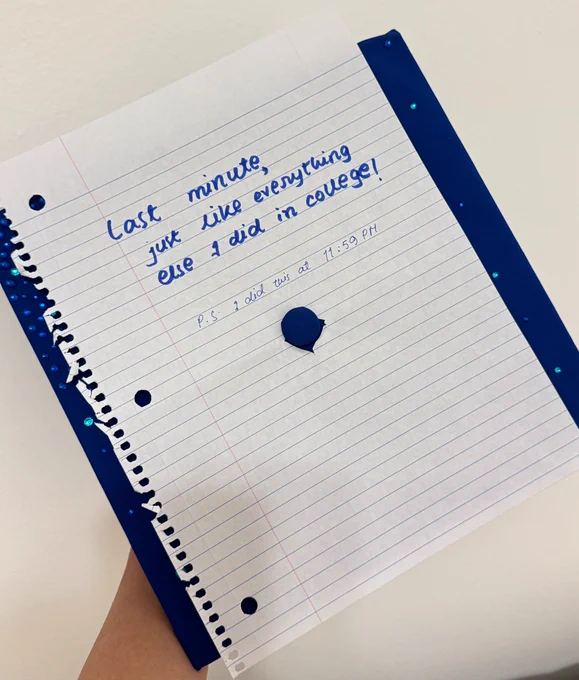 Last minute,
just like everything
else I did in college!
P.S. I did this at 11:59 PM